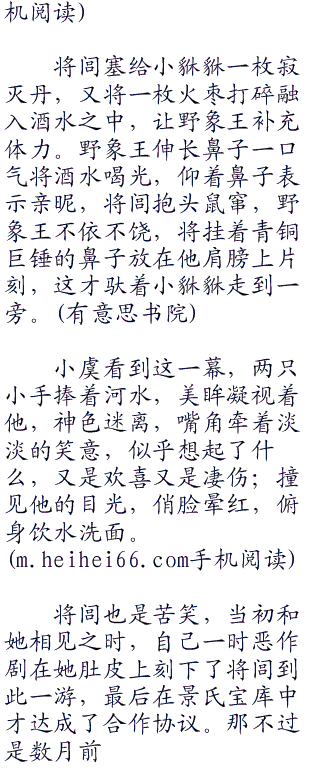 机阅读)
将闾塞给小貅貅一枚寂
灭丹，又将一枚火枣打碎融
入酒水之中，让野象王补充
体力。野象王伸长鼻子一口
气将酒水喝光，仰着鼻子表
示亲昵，将闾抱头鼠窜，野
象王不依不饶，将挂着青铜
巨锤的鼻子放在他肩膀上片
刻，这才驮着小貅貅走到一
旁。(有意思书院)
小虞看到这一幕，两只
小手捧着河水，美眸凝视着
他，神色迷离，嘴角牵着淡
淡的笑意，似乎想起了什
么，又是欢喜又是凄伤；撞
见他的目光，俏脸晕红，俯
身饮水洗面。
(m.heihei66.com手机阅读)
将闾也是苦笑，当初和
她相见之时，自己一时恶作
剧在她肚皮上刻下了将闾到
此一游，最后在景氏宝库中
才达成了合作协议。那不过
是数月前